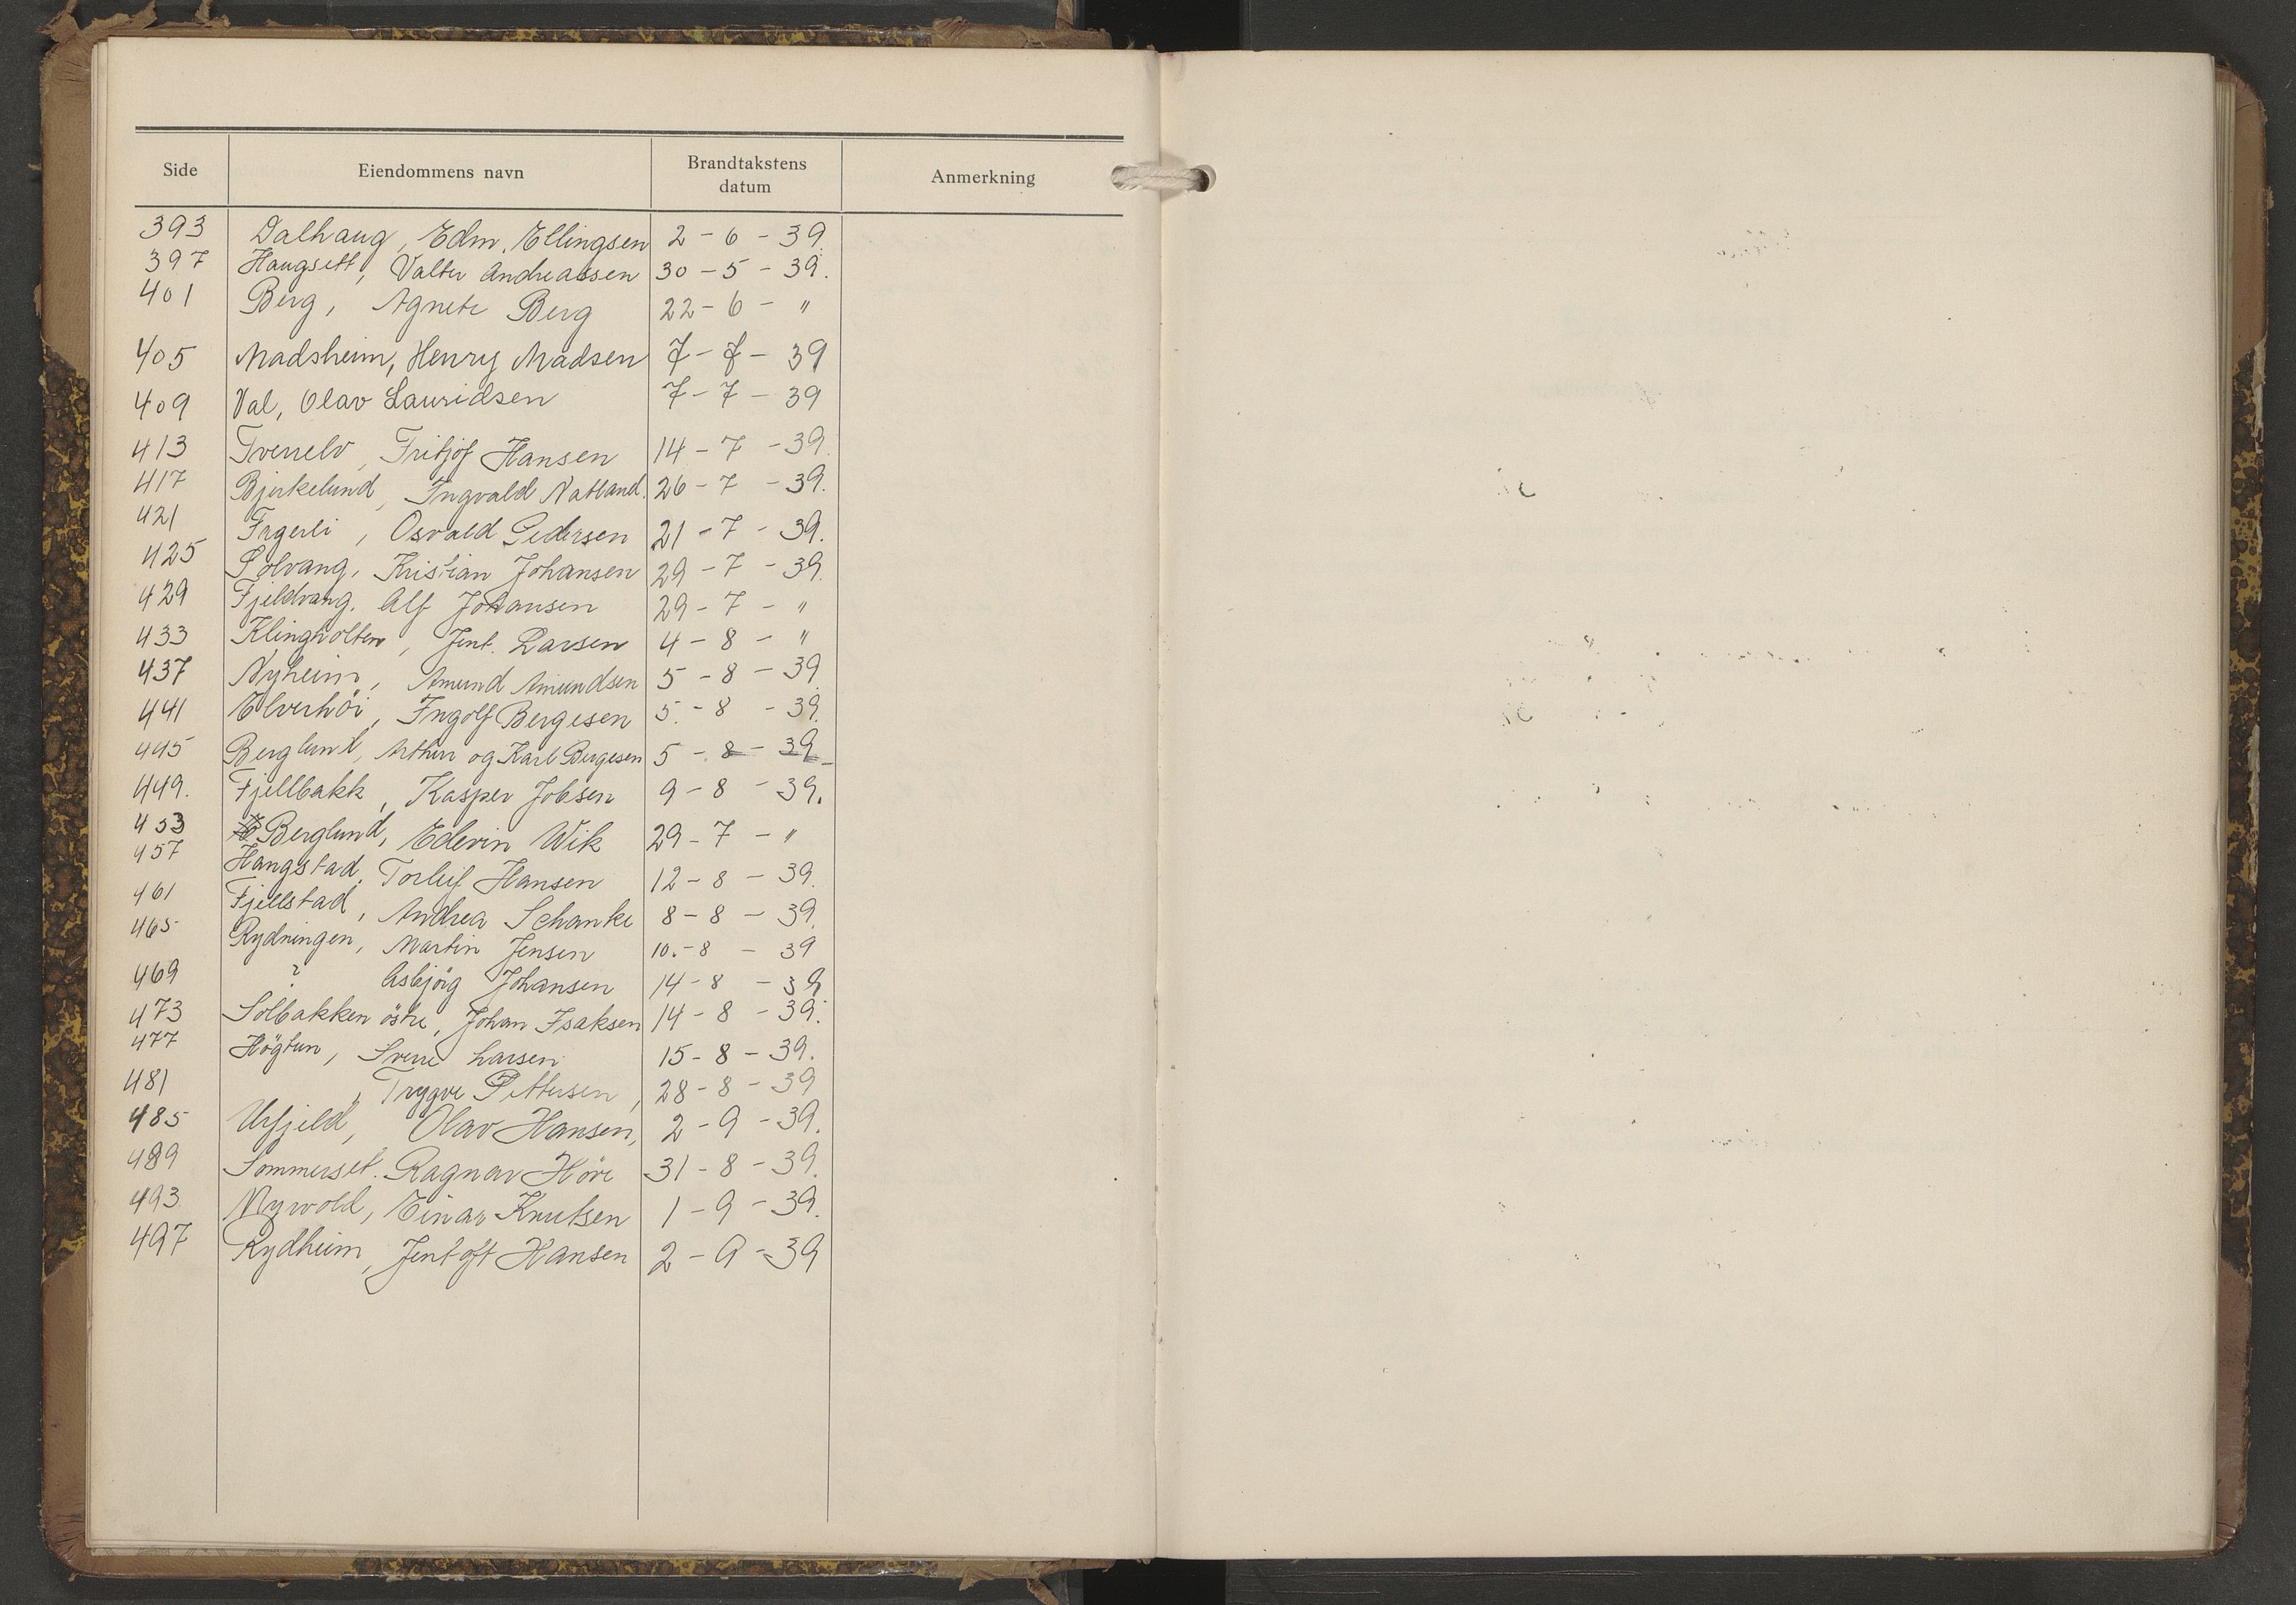 Side Eiendommens navn Brandtakstens datum Anmerkning
393 Dalhaug, Edm. Ellingsen 2 - 6 - 39.
397 Haugsett, Valter Andreassen 30 - 5 - 39.
401 Berg, Agnete Berg 22 - 6 - "
405 Madsheim, Henry Madsen 7 - 7 - 39
409 Val, Olav Lauridsen 7 - 7 - 39
413 Tverrelv, Fritjof Hansen 14 - 7 - 39.
417 Bjerkelund, Ingvald Natland. 26 - 7 - 39.
421 Fagerli, Osvald Pedersen 21 - 7 - 39.
425 Solvang, Kristian Johansen 29 - 7 - 39.
429 Fjeldvang. Alf Johansen 29 - 7 - "
433 Klingholten, Jent. Larsen 4 - 8 - "
437 Nyheim, Amund Amundsen 5 - 8 - 39.
441 Elverhöi, Ingolf Bergesen 5. - 8 - 39.
445 Berglund, Arthur og Karl Bergesen 5 - 8 - 39
449. Fjellbakk, Kasper Jobsen 9 - 8 - 39.
453 Berglund, Edevin Wik 29 - 7 - "
457 Haugstad, Torleif Hansen 12 - 8 - 39.
461 Fjellstad, Andrea Schanke 8 - 8 - 39.
465 Rydningen, Martin Jensen 10. - 8 - 39
469 ? Asbjörg Johansen 14 - 8 - 39
473 Solbakken östre, Johan Isaksen 14 - 8 - 39.
477 Högtun, Sverre Larsen 15 - 8 - 39.
481 " , Trygve Pettersen, 28 - 8 - 39
485 Urfjeld, Olav Hansen, 2 - 9 - 39.
489 Sommerset. Ragnar Höve 31 - 8 - 39.
493 Nyvold, Einar Knutsen 1 - 9 - 39.
497 Rydheim, Jentoft Hansen 2 - 9 - 39